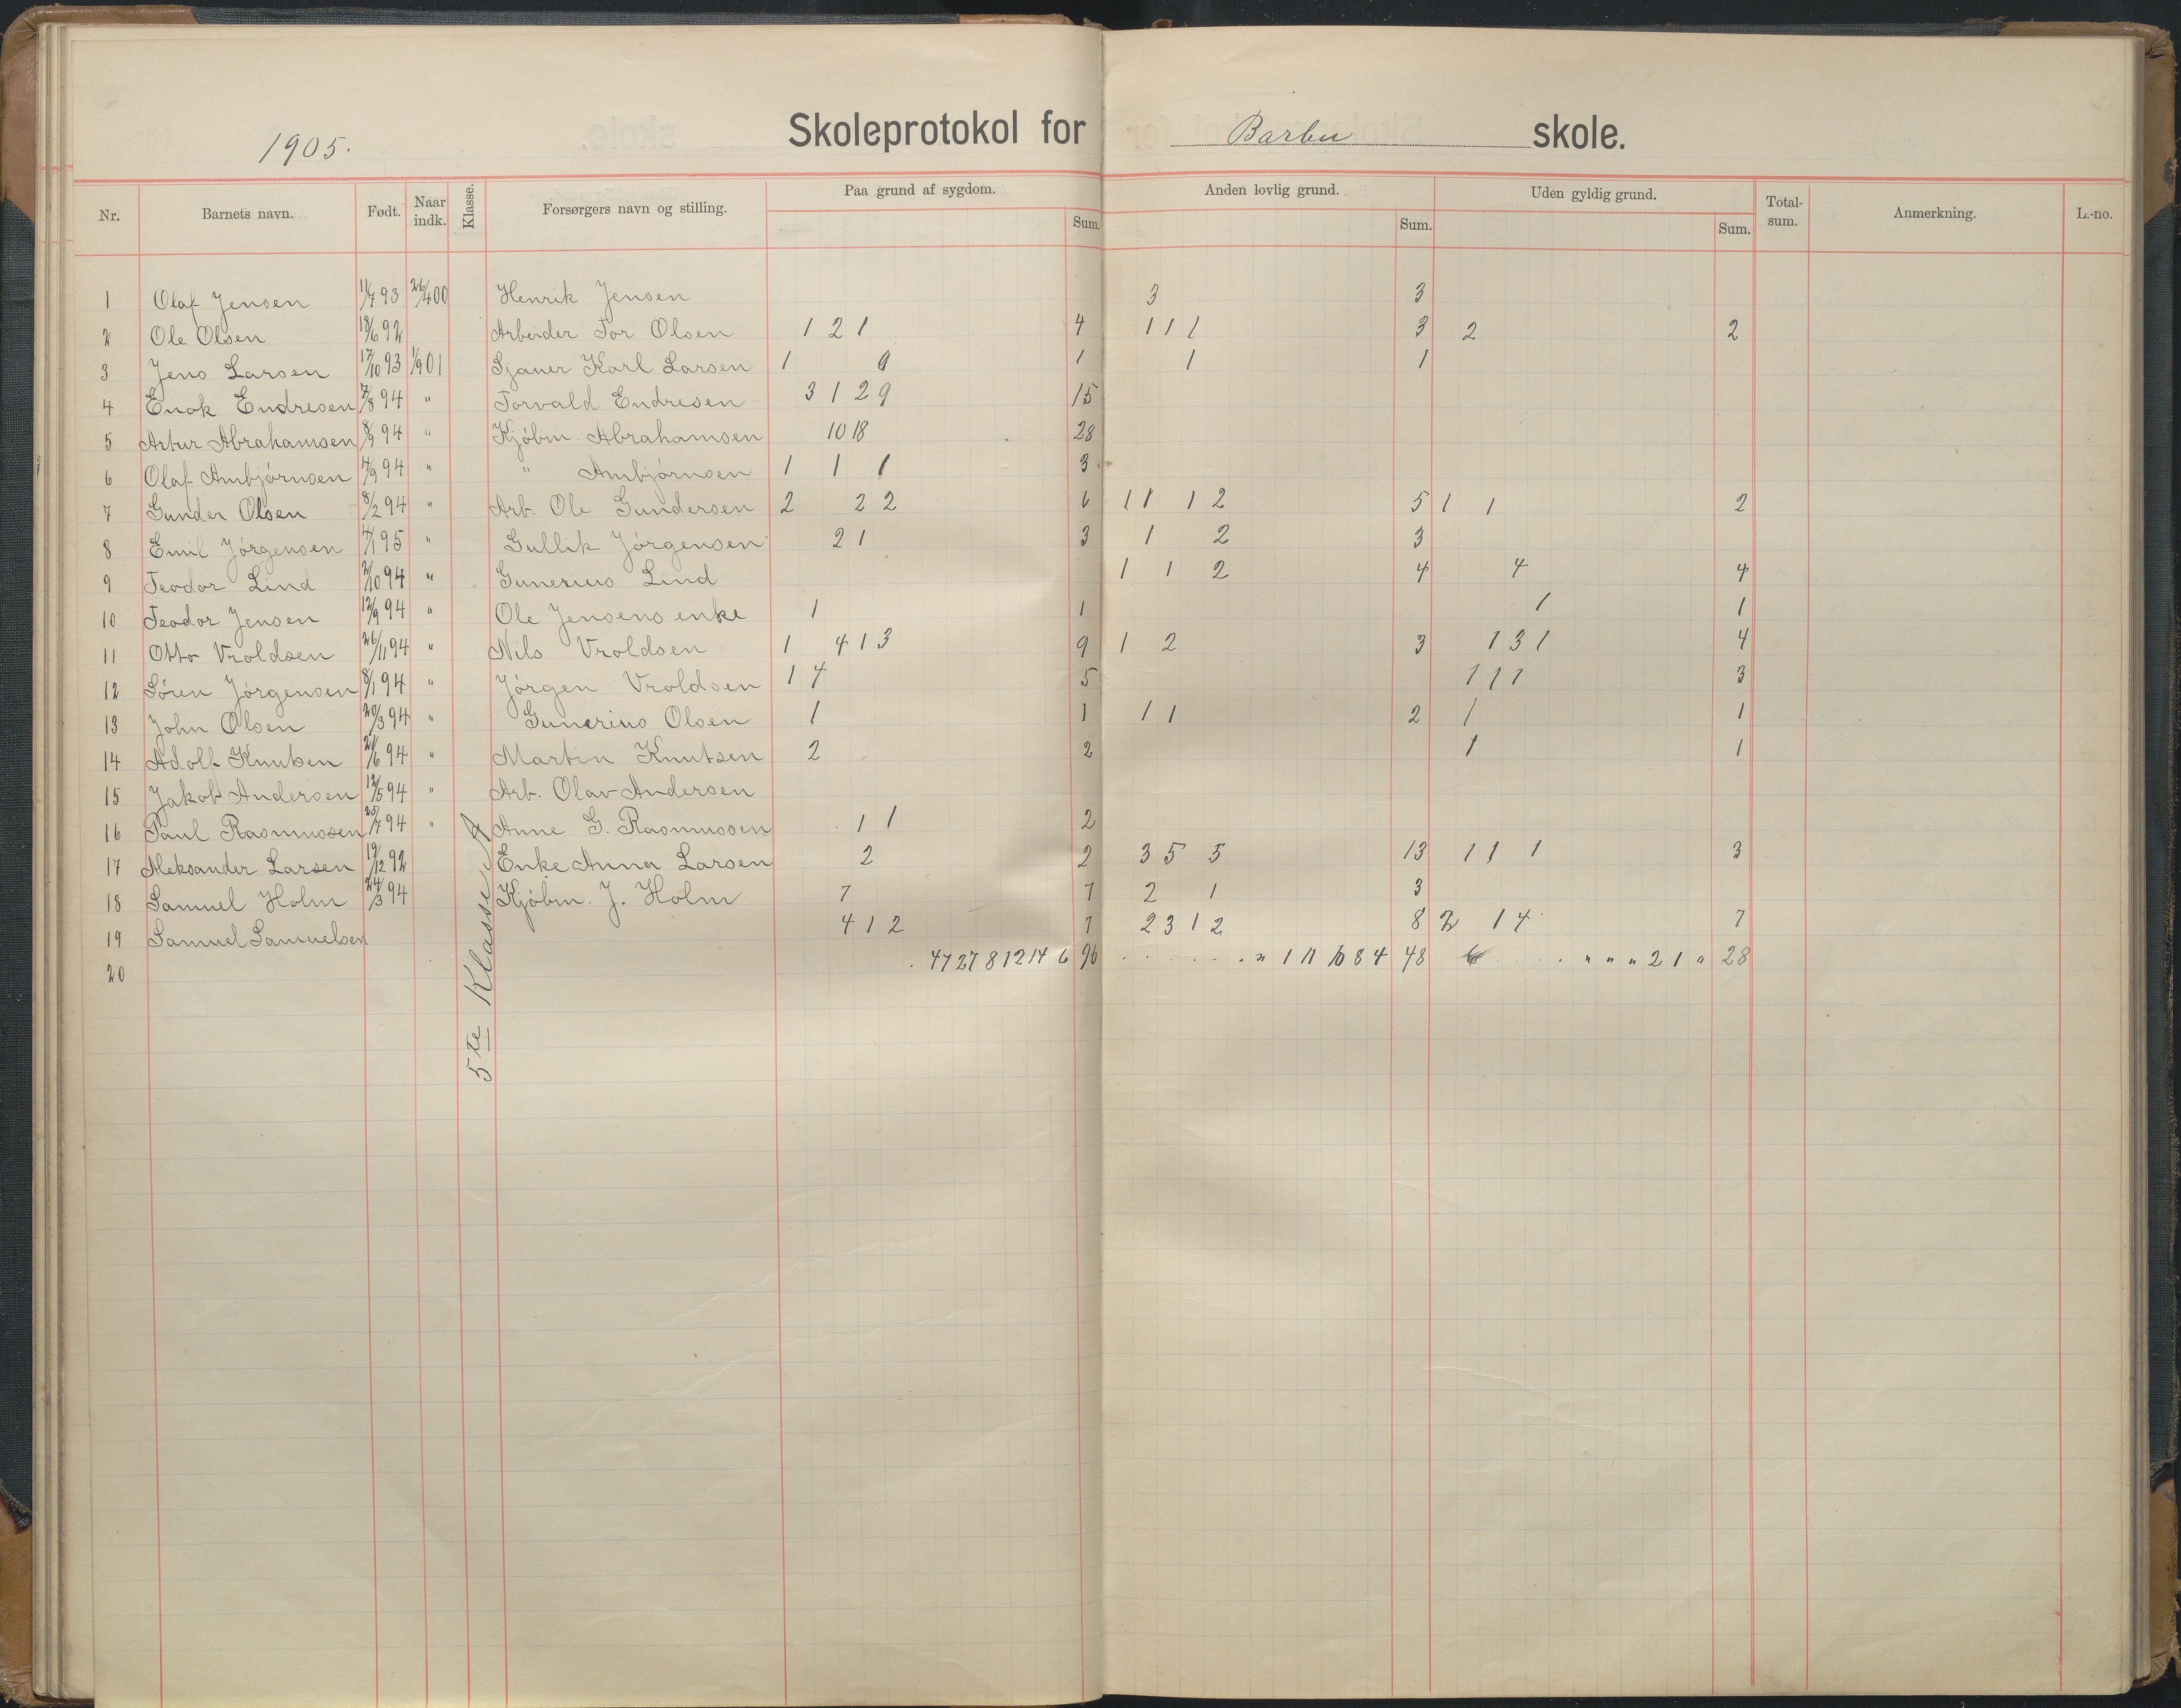 1905.
Skoleprotokol for Barbu skole.
Nr. Barnets navn. Født. Naar indk. Klasse. Forsørgers navn og stilling. Paa grund af sygdom. Sum. Anden lovlig grund. Sum. Uden gyldig grund. Sum. Total-sum. Anmerkning. L.-no.
1 Olaf Jensen 11/7 93 26/4 00 Henrik Jensen 3 3
2 Ole Olsen 18/6 92 Arbeider Tor Olsen 1 2 1 4 1 1 1 3 2 2
3 Jens Larsen 17/10 93 1/9 01 Sjauer Karl Larsen 1 9 1 1 1
4 Enok Endresen 7/8 94 " Torvald Endresen 3 1 2 9 15
5 Artur Abrahamsen 8/9 94 " Kjøbm. Abrahamsen 10 18 28
6 Olaf Ambjørnsen 14/9 94 " " Ambjørnsen 1 1 1 3
7 Gunder Olsen 8/2 94 " Arb. Ole Gundersen 2 2 2 6 1 1 1 2 5 1 1 2
8 Emil Jørgensen 4/1 95 " Gullik Jørgensen 2 1 3 1 2 3
9 Teodor Lind 2/10 94 " Gunerius Lind 1 1 2 4 4 4
10 Teodor Jensen 12/9 94 " Ole Jensens enke 1 1 1 1
11 Otto Vroldsen 26/11 94 " Nils Vroldsen 1 4 1 3 9 1 2 3 1 3 1 4
12 Søren Jørgensen 8/1 94 " Jørgen Vroldsen 1 4 5 1 1 1 3
13 John Olsen 20/3 94 " Gunerius Olsen 1 1 1 1 2 1 1
14 Adolf Knutsen 21/6 94 " Martin Knutsen 2 2 1 1
15 Jakob Andersen 12/5 94 " Arb. Olav Andersen
16 Paul Rasmussen 25/7 94 " Anne G. Rasmussen 1 1 2
17 Aleksander Larsen 19/12 92 Enke Anna Larsen 2 2 3 5 5 13 1 1 1 3
18 Samuel Holm 24/3 94 Kjøbm. J. Holm 7 7 2 1 3
19 Samuel Samuelsen 4 1 2 7 2 3 1 2 8 2 1 4 7
20 4 7 27 8 12 14 6 96 " 1 11 10 8 4 48 " " " 2 1 " 28
5te Klasse A